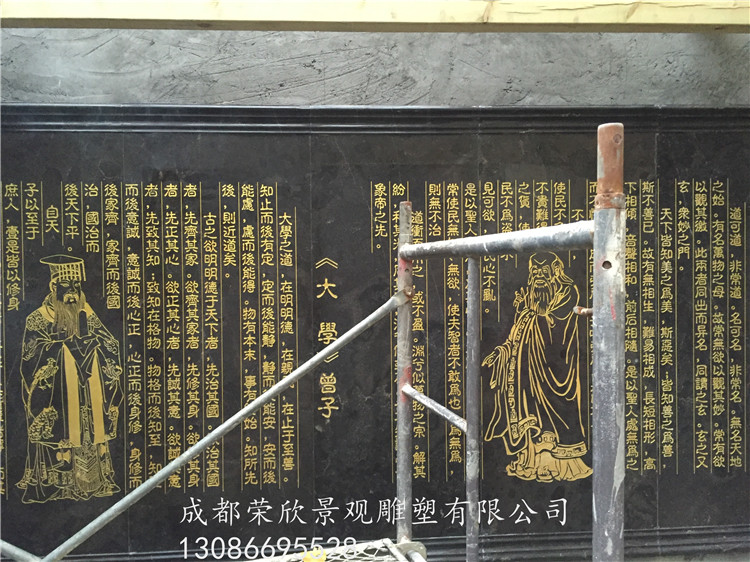 道可道，非常道。名可名，非常名。無名天地
之始。有名萬物之母。故常無欲以觀其妙。常有欲
以觀其徼。此兩者同出而异名，同謂之玄。玄之又
玄，衆妙之門。
天下皆知美之爲美，斯惡矣；皆知善之爲善，
斯不善已。故有無相生，難易相成，長短相形，高
下相傾，音聲相和，前后相隨。是以聖人處無爲之
使民
不貴難
之貨，使
民不爲盜。不
見可欲，民心不亂。
是以聖人
常使民無無欲，使夫智者不敢爲也。爲無爲，
則無不治。
道冲之，或不盈。淵兮似萬物之宗。解其
紛，
象帝之先。
《大學》曾子
大學之道，在明明德，在親，在止于至善。
知止而後有定，定而後能靜，靜而能安，安而後
能慮，慮而後能得。物有本末，事有始。知所先
後，則近道矣。
古之欲明明德于天下者，先治其國。治其國
者，先齊其家。欲齊其家者，先修其身。欲修其身
者，先正其心。欲正其心者，先誠其意。欲誠其意
者，先致其知；致知在格物。物格而後知至，知
而後意誠，意誠而後心正，心正而後身修，身修而
後家齊，家齊而後國
治，國治而
後天下平。
自天
子以至于
庶人，壹是皆以修身
成都荣欣景观雕塑有限公司
13086695528